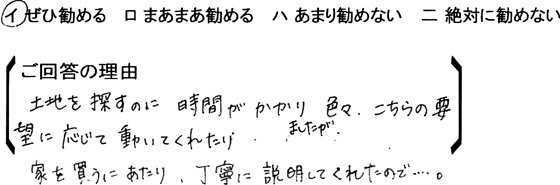 イ ぜひ勧める ロ まあまあ勧める ハ あまり勧めない ニ 絶対に勧めない
ご回答の理由
土地を探すのに 時間がかかり 色々、こちらの要
望に応じて動いてくれたり、ましたが、
家を買うにあたり、丁寧に説明してくれたので…。